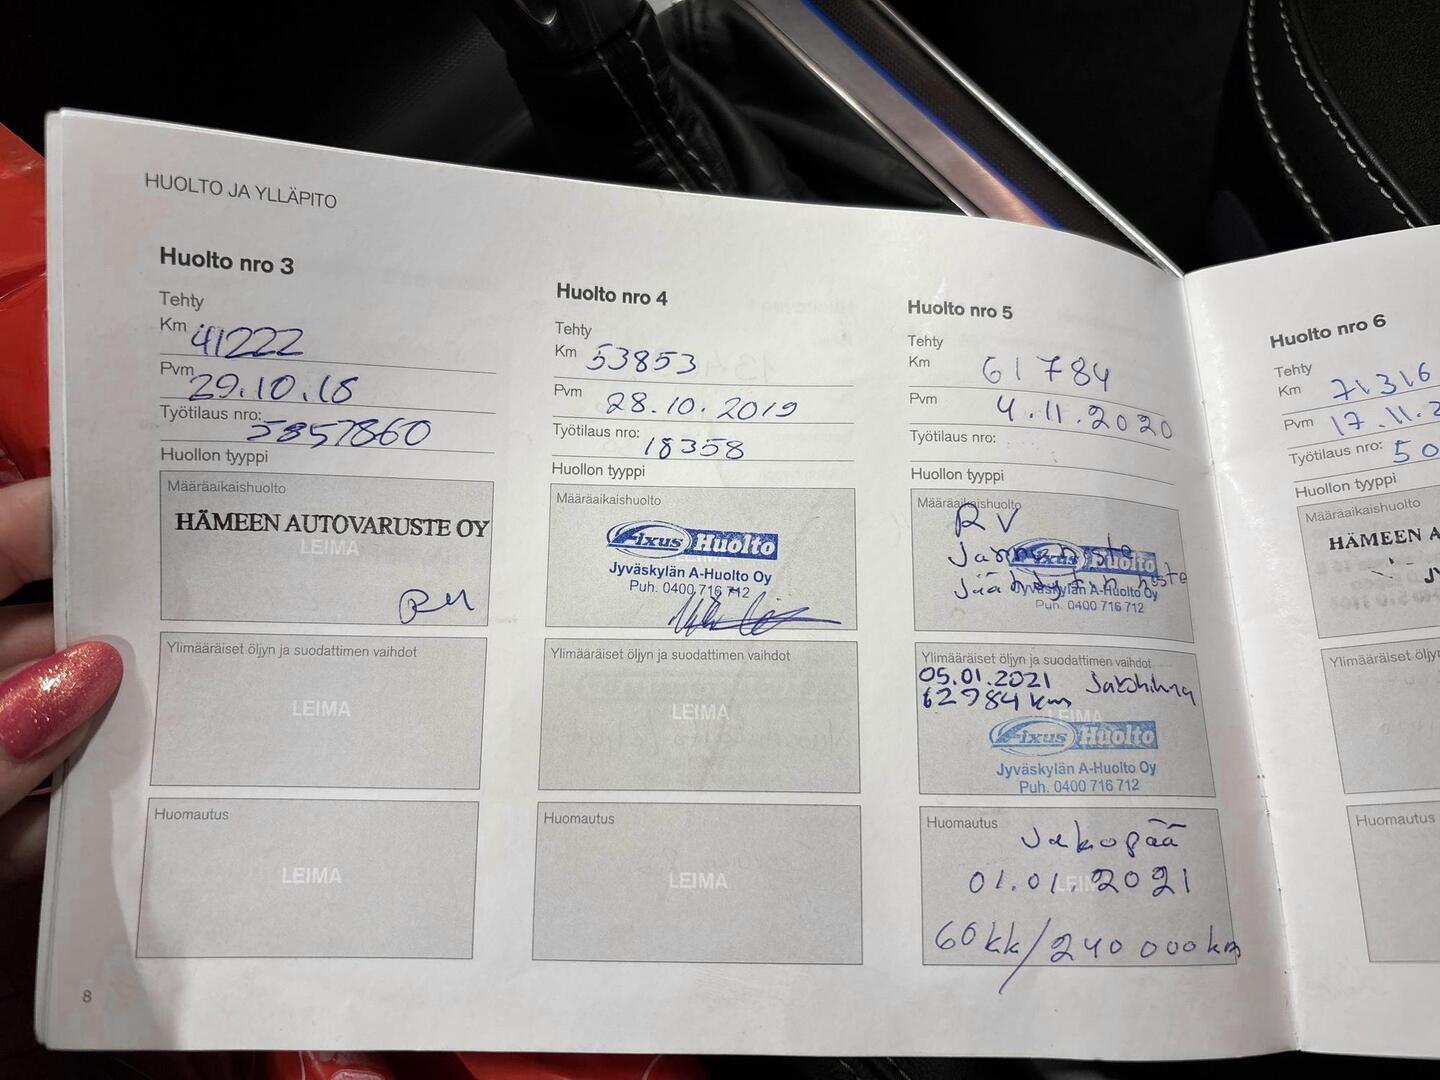 HUOLTO JA YLLÄPITO
Huolto nro 3
Tehty
Km 41222
Pvm 29.10.18
Työtilaus nro: 5857860
Huollon tyyppi
Määräaikaishuolto
HÄMEEN AUTOVARUSTE OY
LEIMA
Ylimääräiset öljyn ja suodattimen vaihdot
LEIMA
Huomautus
LEIMA
8
Huolto nro 4
Tehty
Km 53853
Pvm 28.10.2019
Työtilaus nro: 18358
Huollon tyyppi
Määräaikaishuolto
Fixus Huolto
Jyväskylän A-Huolto Oy
Puh. 0400 716 712
Ylimääräiset öljyn ja suodattimen vaihdot
LEIMA
Huomautus
LEIMA
Huolto nro 5
Tehty
Km 61784
Pvm 4.11.2020
Työtilaus nro:
Huollon tyyppi
Määräaikaishuolto
RV
Jarruneste
Jäähdytinneste
Fixus Huolto
Jyväskylän A-Huolto Oy
Puh. 0400 716 712
Ylimääräiset öljyn ja suodattimen vaihdot
05.01.2021 Jakohihna
62984 km
LEIMA
Fixus Huolto
Jyväskylän A-Huolto Oy
Puh. 0400 716 712
Huomautus
Jakopää
01.01.2021
LEIMA
60kk/240 000km
Huolto nro 6
Tehty
Km 71316
Pvm 17.11.2
Työtilaus nro: 50
Huollon tyyppi
Määräaikaishuolto
HÄMEEN A
Ylimääräiset öljy
Huomautus